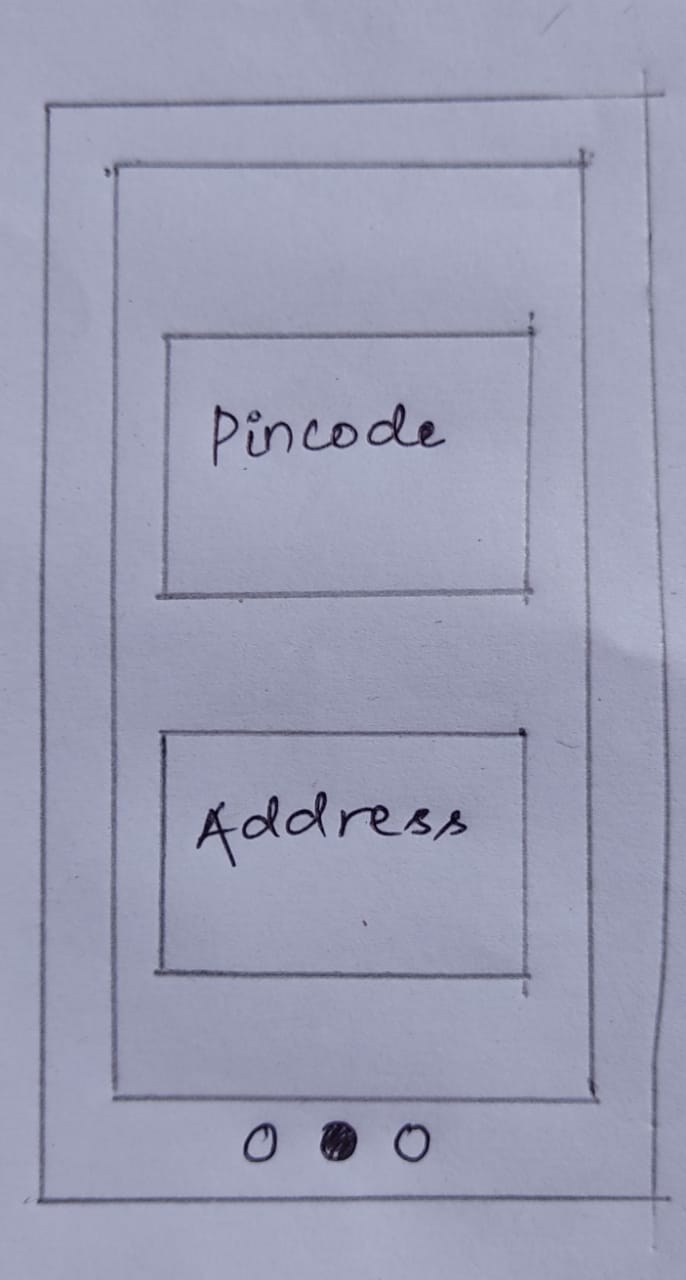 Pincode
Address